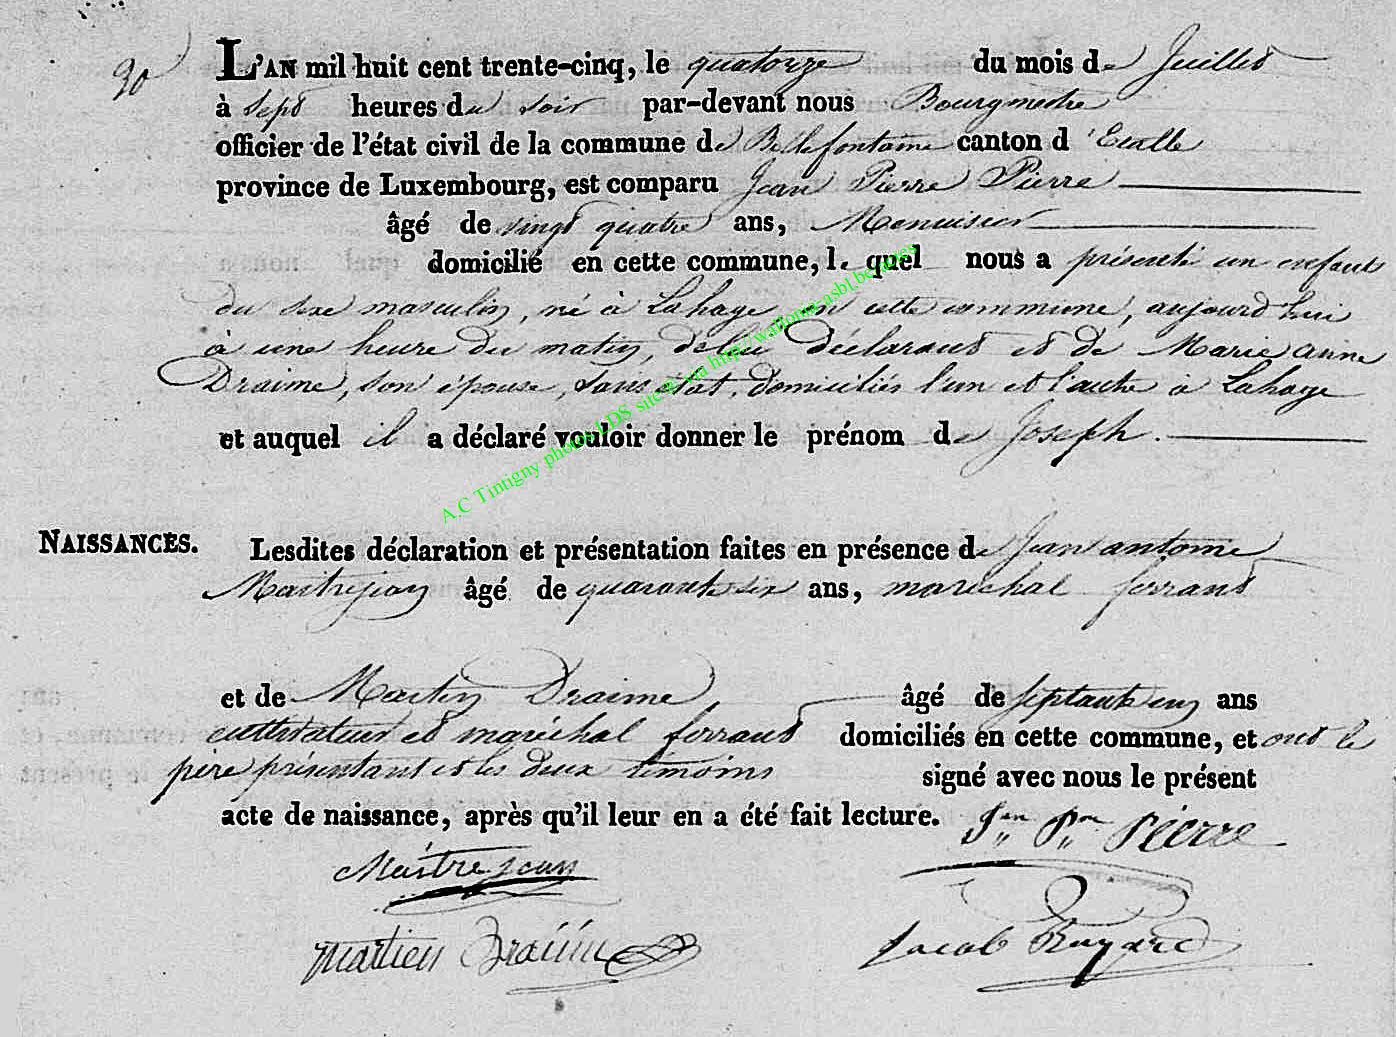 90
L'AN mil huit cent trente-cinq, le quatorze du mois de Juillet
à sept heures du soir par-devant nous Bourgmestre
officier de l'état civil de la commune de Bellefontaine canton d'Etalle
province de Luxembourg, est comparu Jean Pierre Pierre
âgé de vingt quatre ans, Menuisier
domicilié en cette commune, le quel nous a présenté un enfant
du sexe masculin, né à Lahage en cette commune, aujourd'hui
à une heure du matin, de lui déclarant et de Marie anne
Draime, son épouse, sans état, domiciliés l'un et l'autre à Lahage
et auquel il a déclaré vouloir donner le prénom de Joseph.
A.C Tintigny photos LDS site via http://wallonia-asbl.be/actes
NAISSANCES. Lesdites déclaration et présentation faites en présence de Jean antoine
Maitrejean âgé de quarante six ans, maréchal ferrant
et de Martin Draime âgé de septante un ans
cultivateur et maréchal ferrant domiciliés en cette commune, et ont le
père présentant et les deux témoins signé avec nous le présent
acte de naissance, après qu'il leur en a été fait lecture. Jn Prre Pierre
Maitrejean
martien Draim Jacob